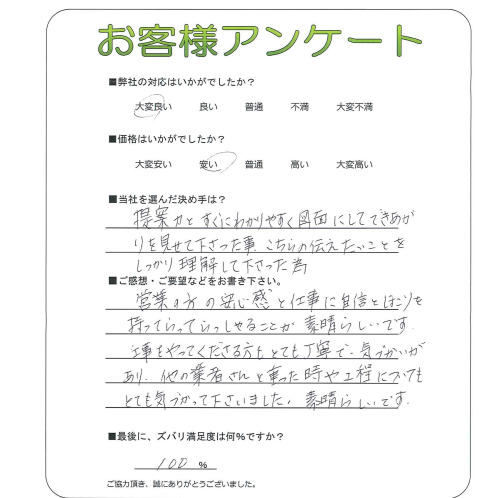 お客様アンケート
■弊社の対応はいかがでしたか？
大変良い 良い 普通 不満 大変不満
■価格はいかがでしたか？
大変安い 安い 普通 高い 大変高い
■当社を選んだ決め手は？
提案力とすぐにわかりやすく図面にしてできあが
りを見せて下さった事、こちらの伝えたいことを
しっかり理解して下さった為
■ご感想・ご要望などをお書き下さい。
営業の方の安心感と仕事に自信とほこりを
持ってらってらっしゃることが素晴らしいです。
工事をやってくださる方もとても丁寧で、気づかいが
あり、他の業者さんと重った時や工程についても
とても気づかって下さいました。素晴らしいです。
■最後に、ズバリ満足度は何％ですか？
100 %
ご協力頂き、誠にありがとうございました。